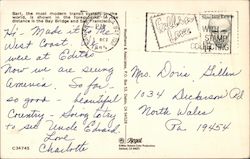 Bart, the most modern transit system in the world, is shown in the foreground in
the Bay Bridge and San Francisco
Hi - Made it to
West Coast. We
were at Edith's
Now we are seeing
America. So far -
so good - beautiful
Country - Going to try
to see Uncle Edward
Love
Charlotte
C34745
WILL
STAMP
COLLECTING
Mrs. Doris Gillen
1034 Dickerson Rd
North Wales
Pa 19454
Royal